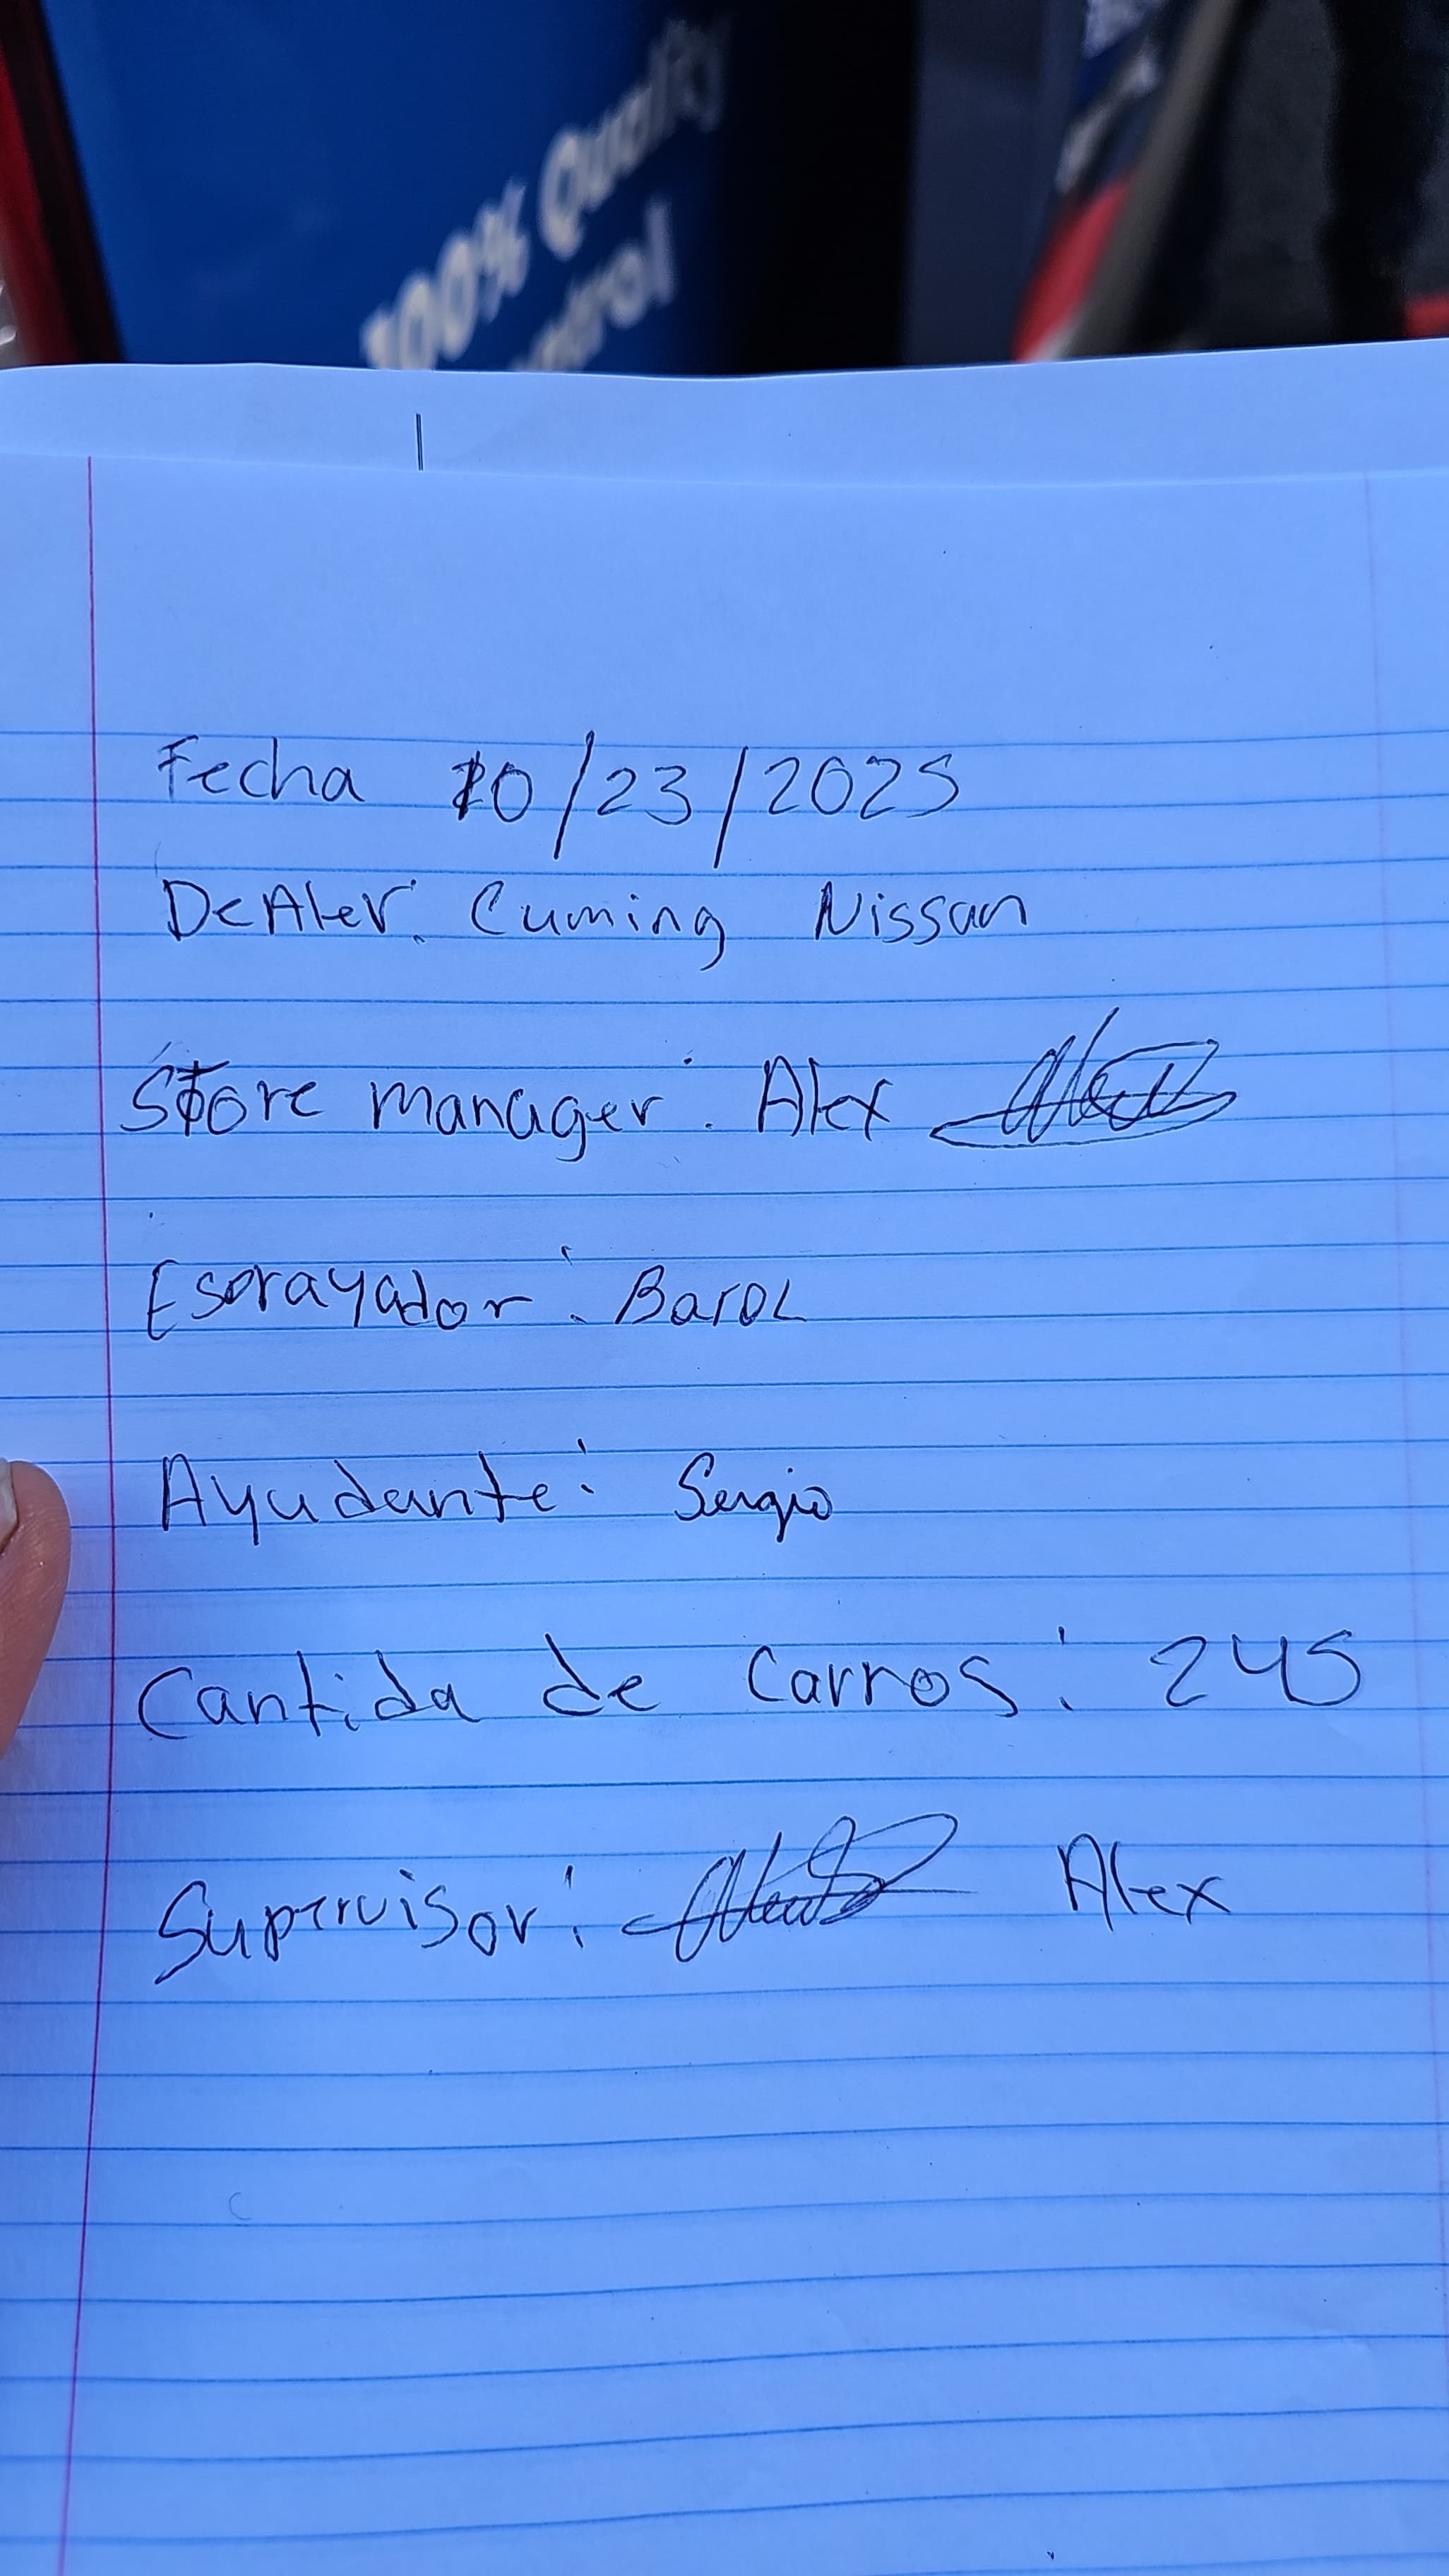 100% Quality
Control
Fecha 10/23/2025
DeAler: Cuming Nissan
Store manager: Alex
Esprayador: Barol
Ayudante: Sergio
Cantida de Carros: 245
Supervisor: Alex